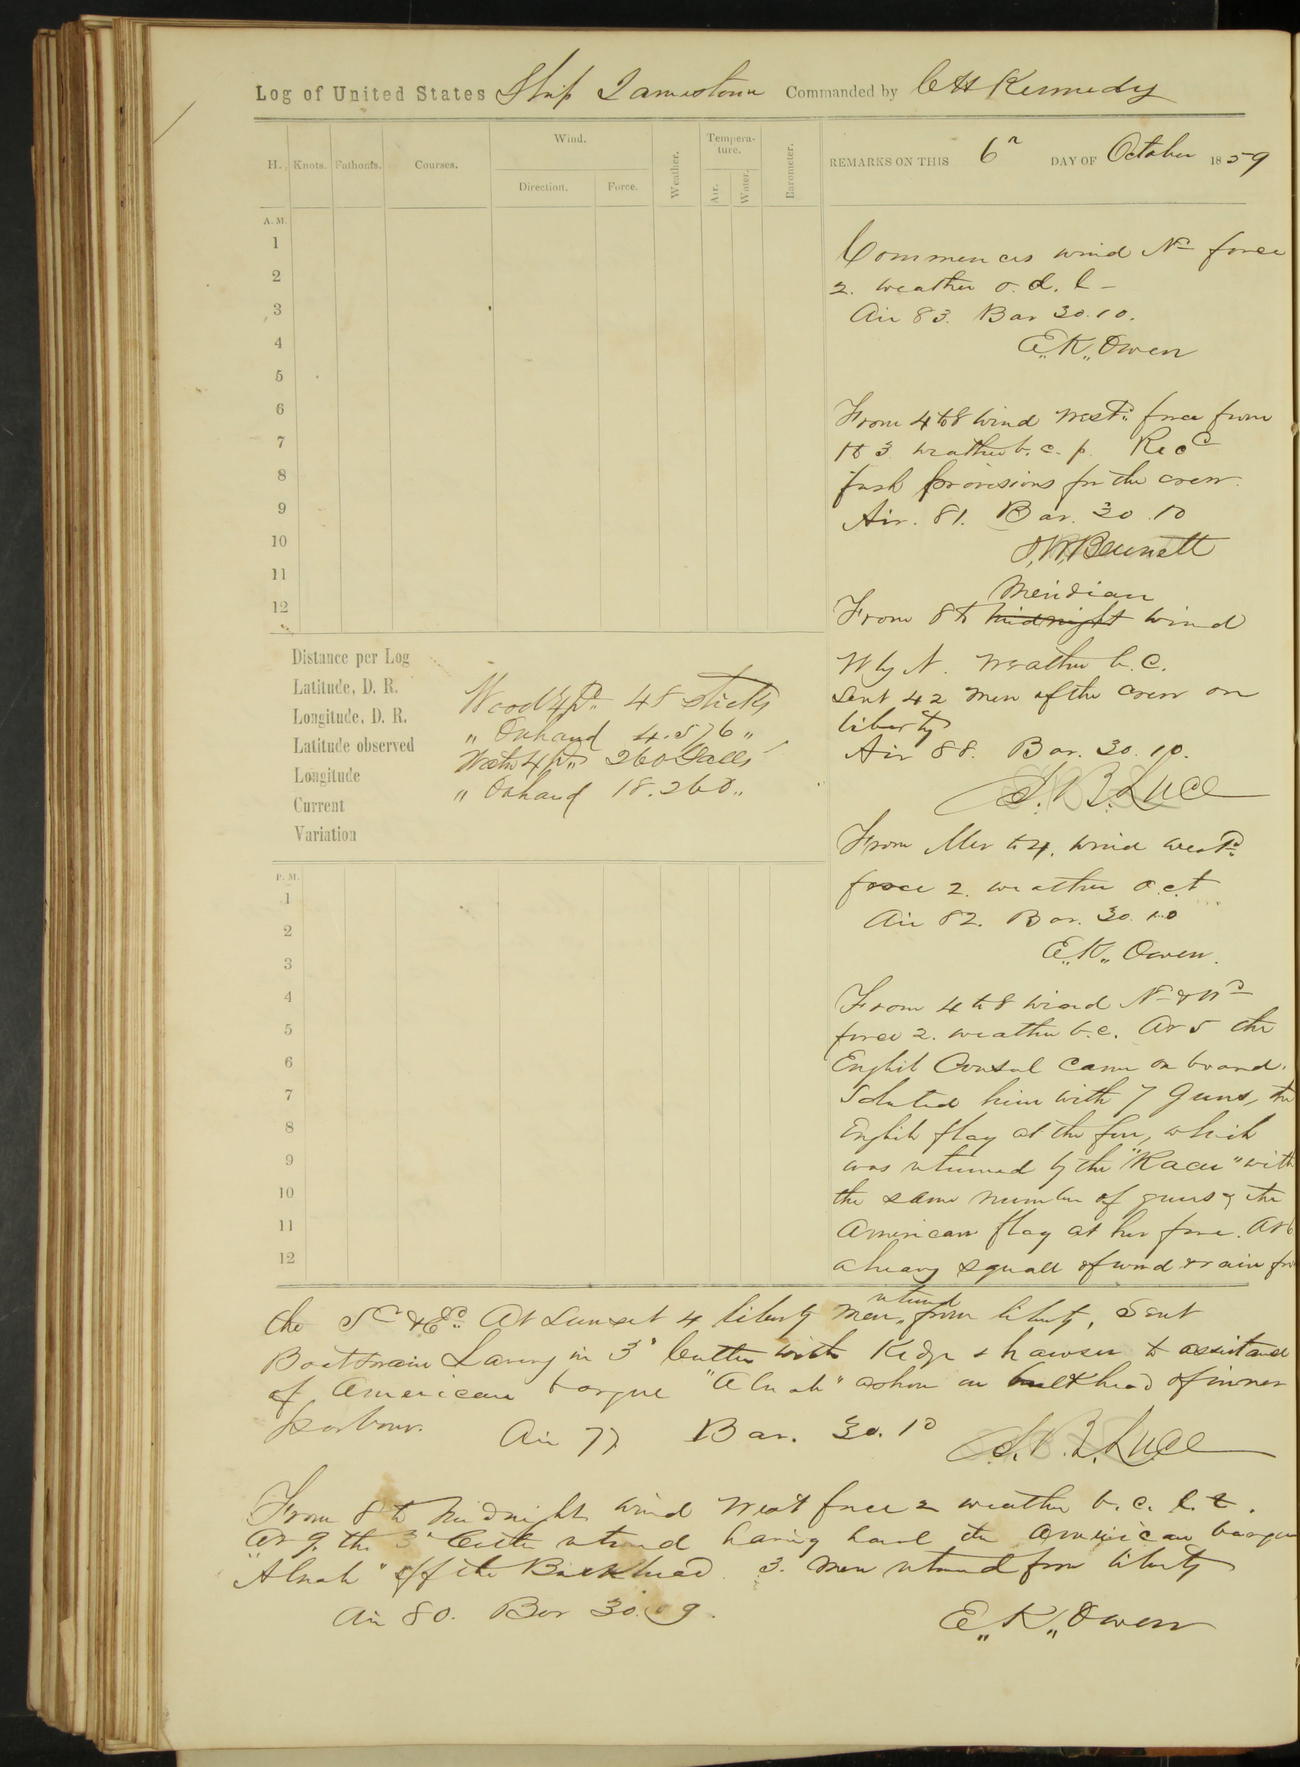 Log of United States Ship Jamestown Commanded by C H Kennedy
H. Knots. Fathoms. Courses. Wind. Direction. Force. Weather. Tempera-ture. Air. Water. Barometer.
REMARKS ON THIS 6th DAY OF October 1859
A. M.
1
2
3
4
5
6
7
8
9
10
11
12
Commences wind Nd force
2. weather o. d. l –
Air 83. Bar 30.10.
E. K. Owen
From 4 to 8 wind Westd. force from
1 to 3 weather b. c. p. Recd
fresh provisions for the crew.
Air. 81. Bar. 30.10
J. W. Bennett
Meridian
From 8 to midnight wind
W by N. Weather b. c.
Sent 42 men of the crew on
liberty
Air 88. Bar. 30.10.
S. B. Luce
Distance per Log
Latitude, D. R.
Longitude, D. R.
Latitude observed
Longitude
Current
Variation
Wood Expd. 48 sticks
" On hand 4.576 "
Water Expd. 260 Galls
" On hand 18.260 "
From Mer to 4. wind westd.
force 2. weather o. c. t
Air 82. Bar. 30.10
E. K. Owen.
P. M.
1
2
3
4
5
6
7
8
9
10
11
12
From 4 to 8 wind Nd & Wd
force 2. weather b. c. At 5 the
English Consul came on board.
Saluted him with 7 Guns, the
English flag at the fore, which
was returned by the "Racer" with
the same number of guns & the
American flag at her fore. At 6
a heavy squall of wind & rain from
the Sd & Ed. At Sunset 4 liberty men returned from liberty, Sent
Boatswain in 3d Cutter with Kedge & hawser to assistance
of American barque "Alnah" ashore on bulkhead of inner
harbour. Air 77 Bar. 30.10 S. B. Luce
From 8 to Midnight wind West force 2 weather b. c. l. t.
At 9. the 3d Cutter returned having hauled the American barque
"Alnah" off the Bulkhead. 3. men returned from liberty
Air 80. Bar 30.09.
E. K. Owen